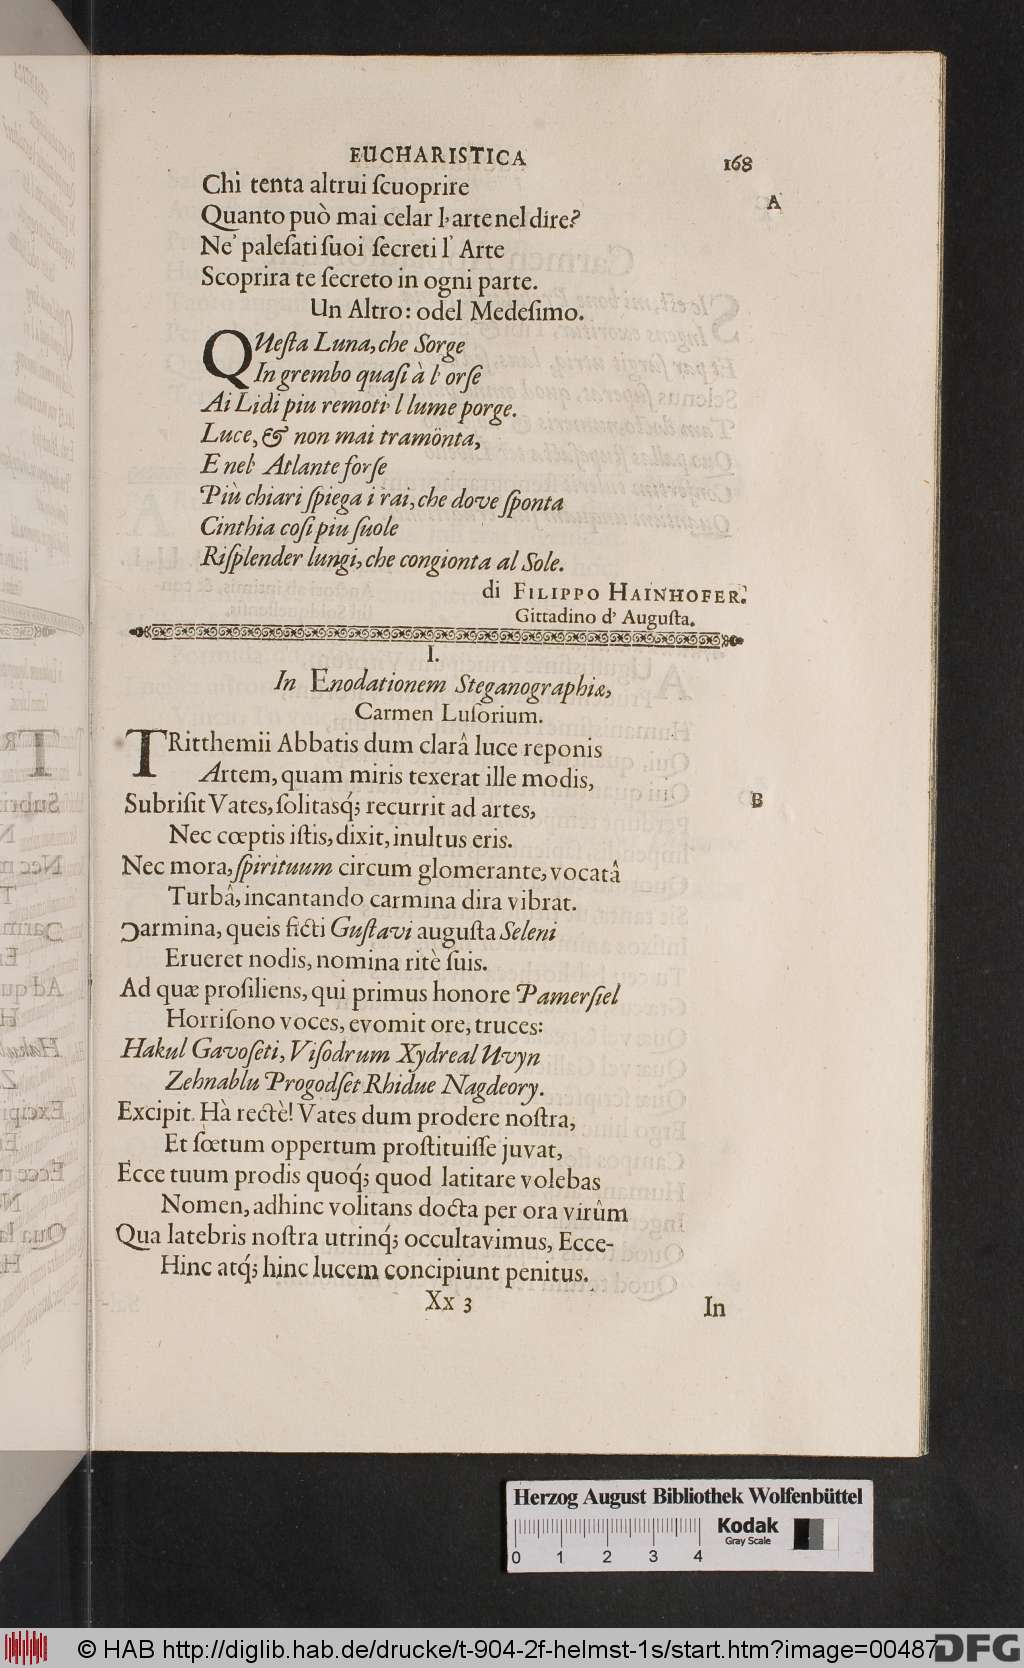 EUCHARISTICA 168
Chi tenta altrui ſcuoprire
A
Quanto può mai celar l'arte nel dire?
Ne' paleſati ſuoi ſecreti l' Arte
Scoprira te ſecreto in ogni parte.
Un Altro: odel Medeſimo.
QUeſta Luna, che Sorge
In grembo quaſi à l' orſe
Ai Lidi piu remoti l lume porge.
Luce, & non mai tramönta,
E nel' Atlante forſe
Più chiari ſpiega i rai, che dove ſponta
Cinthia coſi piu ſuole
Riſplender lungi, che congionta al Sole.
di FILIPPO HAINHOFER.
Gittadino d' Auguſta.
I.
In Enodationem Steganographiæ,
Carmen Luſorium.
TRitthemii Abbatis dum clarâ luce reponis
Artem, quam miris texerat ille modis,
Subriſit Vates, ſolitasq́; recurrit ad artes,
B
Nec cœptis iſtis, dixit, inultus eris.
Nec mora, ſpirituum circum glomerante, vocatâ
Turbâ, incantando carmina dira vibrat.
Ɔarmina, queis ficti Guſtavi auguſta Seleni
Erueret nodis, nomina ritè ſuis.
Ad quæ proſiliens, qui primus honore Pamerſiel
Horriſono voces, evomit ore, truces:
Hakul Gavoſeti, Viſodrum Xydreal Uvyn
Zehnablu Progodſet Rhidue Nagdeory.
Excipit. Hà rectè! Vates dum prodere noſtra,
Et fœtum oppertum proſtituiſſe juvat,
Ecce tuum prodis quoq́; quod latitare volebas
Nomen, adhinc volitans docta per ora virûm
Qua latebris noſtra utrinq́; occultavimus, Ecce-
Hinc atq́; hinc lucem concipiunt penitus.
Xx 3 In
Herzog August Bibliothek Wolfenbüttel
Kodak
Gray Scale
0 1 2 3 4
© HAB http://diglib.hab.de/drucke/t-904-2f-helmst-1s/start.htm?image=00487
DFG